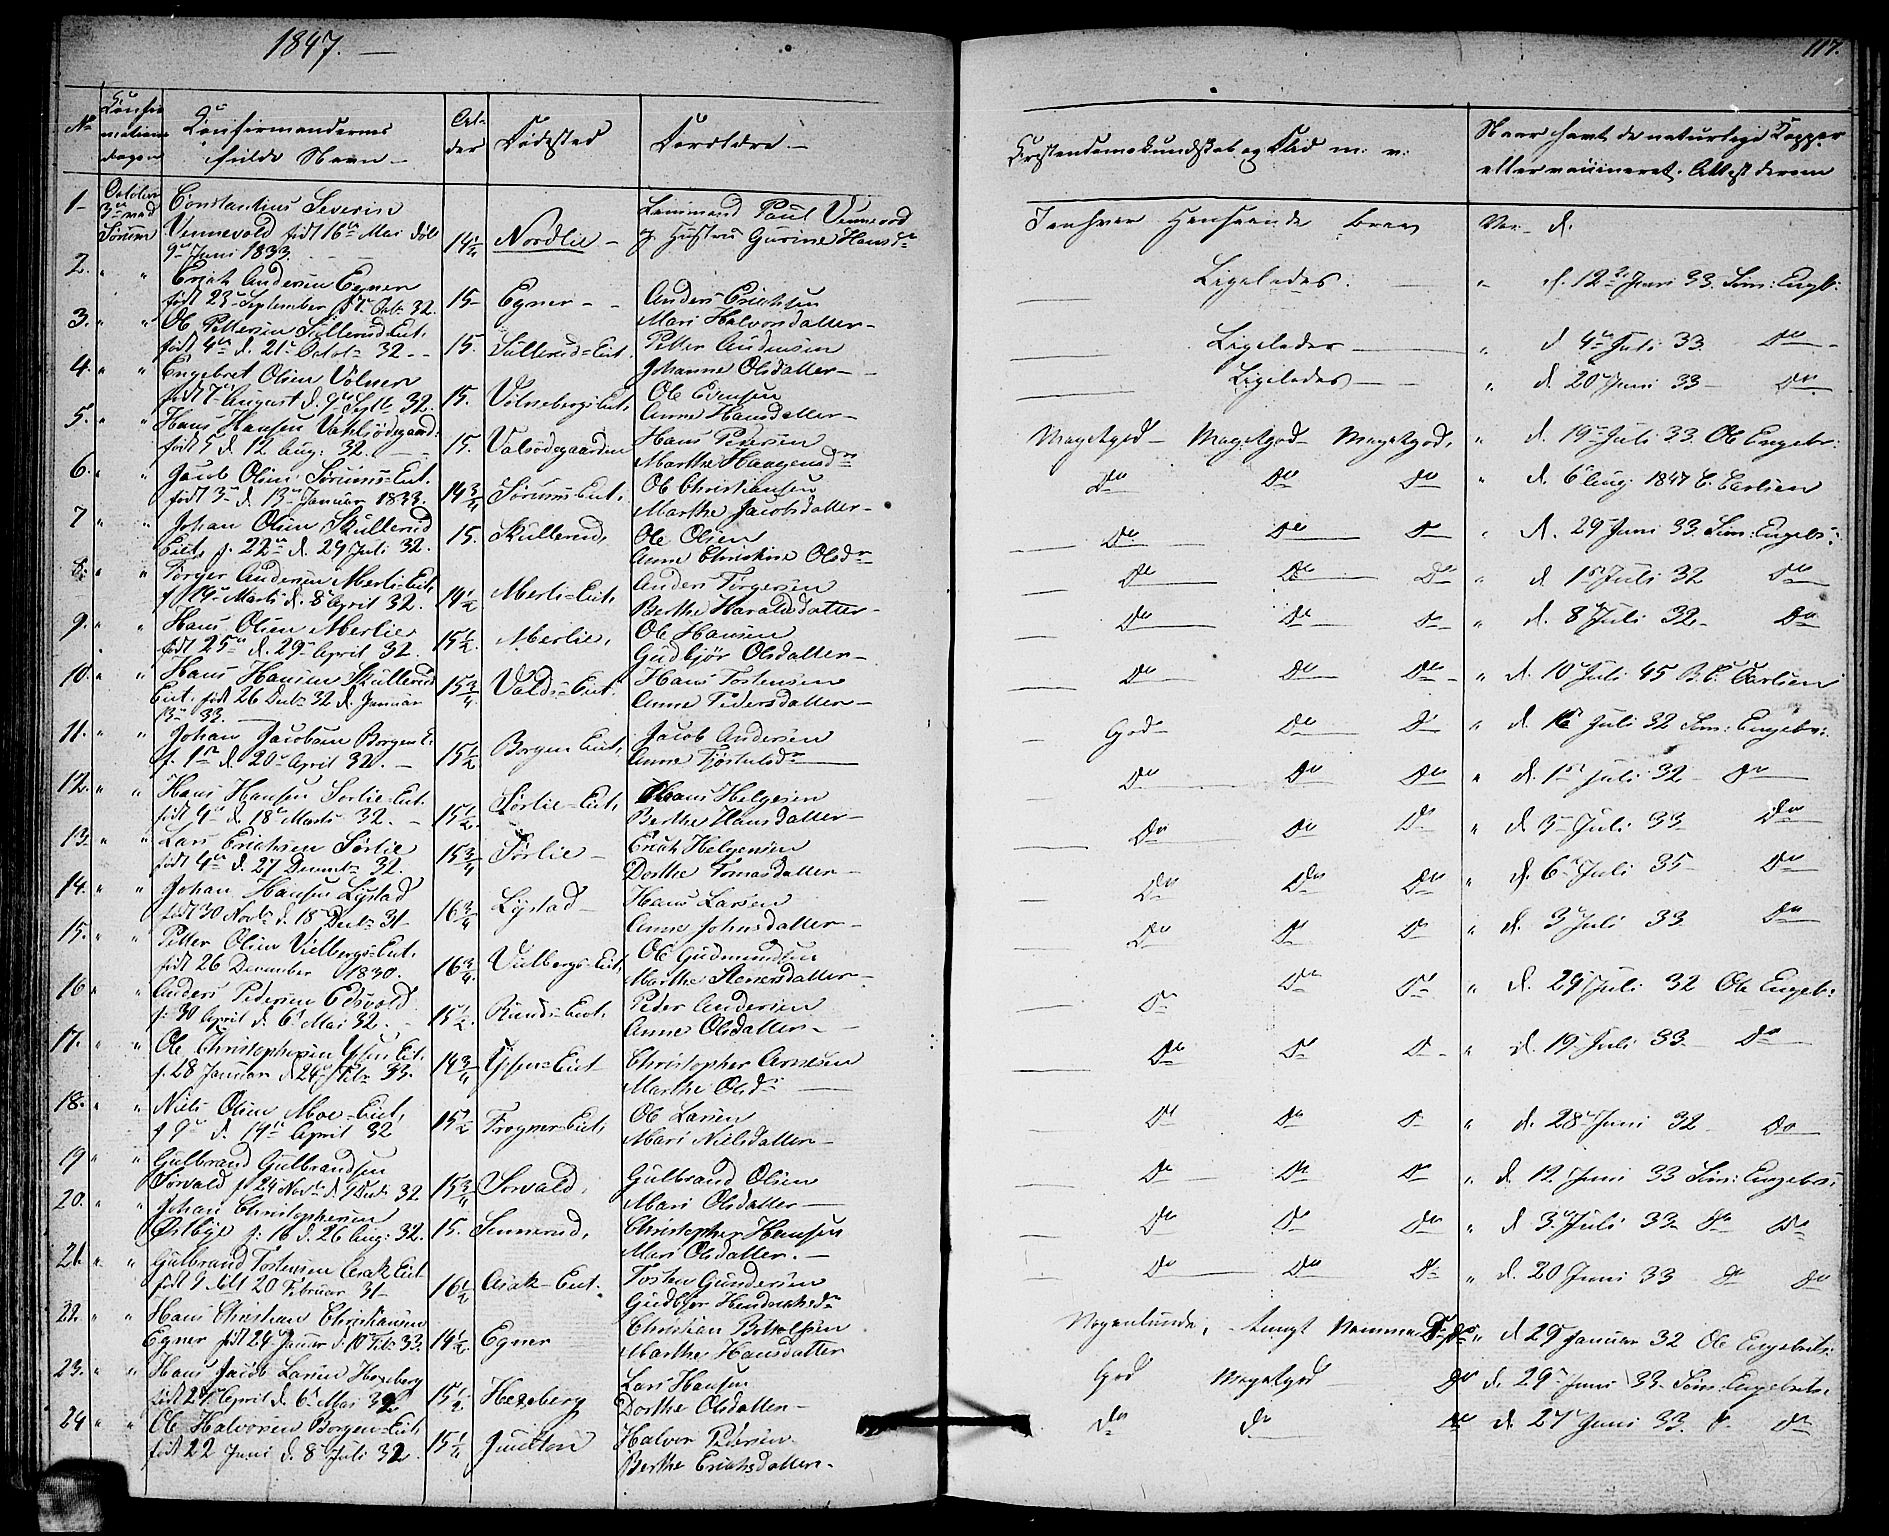 1847. —
117.
No
Confirmations dagen
Confirmandernes fulde Navn —
Alder
Fødested
Forældre —
Christendomskundskab og Flid m: v:
Naar havt de naturlige Kopper
eller vaccineret. Attest derom
1- October 3de ved Sørum Constantius Severin
Vennevold født 16de Mai døb
9de Juni 1833. 14 1/4 Nordlie — Paul Vennevold
og Hustru Gurine Hansdr
2. " " Erich Andersen Egner
født 23 September d. 7 Octb 32. 15 Egner — Anders Erichsen
Mari Halvorsdatter — Ligeledes. " d. 12 Juni 33. Sim: Engb:
3. " " Ole Pettersen Sullerud Eie,
født 4de d. 21 Octob 32 — 15. Sullerud=Eie, Petter Andersen
Johanne Olsdatter — Ligeledes — " d 4de Juli 33. Do —
4. " " Engebret Olsen Volner
født 7de August d. 9de Septb 32. 15. Volnebergs Eie, Ole Evensen
Anne Hansdatter — Ligeledes — " d. 20 Juni 33 — Do
5. " " Hans Hansen
født 5 d. 12 Aug: 32. 15. Valsødegaarden Hans Pedersen
Marthe Haagensdr Megetgod — Megetgod — Megetgod, " d. 19 Juli 33. Ole Engebr:
6. " " Jacob Olsen Sørums=Eie,
født 3 d. 13 Januar 1833. 14 3/4 Sørums=Eie, Ole Christiansen
Marthe Jacobsdatter — Do Do Do " d. 6 Aug. 1847 C. Carlsen
7 " " Johan Olsen Skullerud
Eie, f. 22de d. 29 Juli 32. 15. Skullerud, Ole Olsen
Anne Christine Olsdr Do Do Do " d. 29 Juni 33. Sim: Engeb:
8. " " Torger Andersen Merli=Eie,
f 19 Marts d. 8 April 32. 14 1/2 Merli=Eie, Anders Torgersen
Berthe Haraldsdatter — Do Do Do " d 15 Juli 32 Do
9. " " Hans Olsen Merlie
født 25de d. 29 April 32. 15 1/2. Merlie, Ole Hansen
Gudbjør Olsdatter — Do Do Do " d. 8 Juli 32 — Do
10. " " Hans Hansen Skullerud
Eie, født 26 Decb 32 d. Januar
13 33. 15 3/4. Valds=Eie. Hans Tostensen
Anne Pedersdatter — Do Do Do " d. 10 Juli 45 B. C. Carlsen
11. " " Johan Jacobsen Borgen E.
f. 1ste d. 20 April 32. 15 1/2 Borgen Eie, Jacob Andersen
Anne Tjøstulsdr God — Do Do " d. 16 Juli 32 Sim: Engebr:
12. " " Hans Hansen Sørlie=Eie.
født 4de d. 18 Marts 32. 15 1/2. Sørlie=Eie, Hans Helgesen
Berthe Hansdatter — Do Do Do " d. 1ste Juli 32 — Do
13 " " Lars Erichsen Sørlie
født 4de d. 27 Decemb 32. 15 3/4 Sørlie — Erich Helgesen
Dorthe Tomasdatter — Do Do Do " d 3 Juli 33 Do
14. " " Johan Hansen Lystad
født 30 Novb d. 18 Decb 31 — 16 3/4 Lystad — Hans Larsen
Anne Johnsdatter — Do Do Do " d. 6 Juli 35 — Do
15. " " Petter Olsen Vilbergs=Eie,
født 26 December 1830. 16 3/4. Vilbergs=Eie, Ole Gudmundsen
Marthe Steners­datter — Do Do Do " d. 3 Juli 33 Do
16 " " Anders Pedersen Edsvold
f. 30 April d. 6 Mai 32. 15 1/2. Runds=Eie, Peder Andersen
Anne Olsdatter — Do Do Do " d. 29 Juli 32 Ole Engeb:
17. " " Ole Christophersen Yssen Eie,
f. 28 Januar d. 24 Feb 33. 14 3/4 Yssen=Eie Christopher Arnesen
Marthe Olsdr Do Do Do " d. 19 Juli 33 — Do
18. " " Niels Olsen Moe=Eie,
f 9de d. 19de April 32 15 1/2 Frogner=Eie, Ole Larsen
Mari Nielsdatter — Do Do Do " d. 28 Juni 32 — Do
19 " " Gulbrand Gulbrandsen
Sørvald f 24 Novb d. 9 Decb 32 15 3/4 Sørvald, Gulbrand Olsen
Mari Olsdatter — Do Do Do " d 12 Juni 33 Sim: Engebr:
20. " " Johan Christophersen
Østbye f: 16 d. 26 Aug: 32. 15. Christopher Hansen
Mari Olsdatter. — Do Do Do " d 3 Juli 33 — Do Do
21. " " Gulbrand Tostensen Asak Eie
født 9 20 Februar 31 — 16 1/2 Asak=Eie. Tosten Gundersen
Gudbjør Do Do Do " d. 20 Juni 33 Do Do
22. " " Hans Christian Christiansen
Egner født 24 Januar d. 10 Feb 33. 14 1/2 Egner Christian
Marthe Hansdatter Nogenlunde, tungt Nemme Do " d 29 Januar 32 Ole Engebrets:
23. " " Hans Jacob Larsen Hexeberg
født 24 April d. 6 Mai 32 15 1/2 Hexeberg Lars Hansen
Dorthe Olsdatter — God Megetgod Do d. 29 Juni 33 Sim: Engebrets:
24 " " Ole Halvorsen Borgen=Eie,
født 22 Juni d. 8 Juli 32. 15 1/4 Halvor Pedersen
Berthe Erichsdatter — do do do d. 27 Juni 33. Do